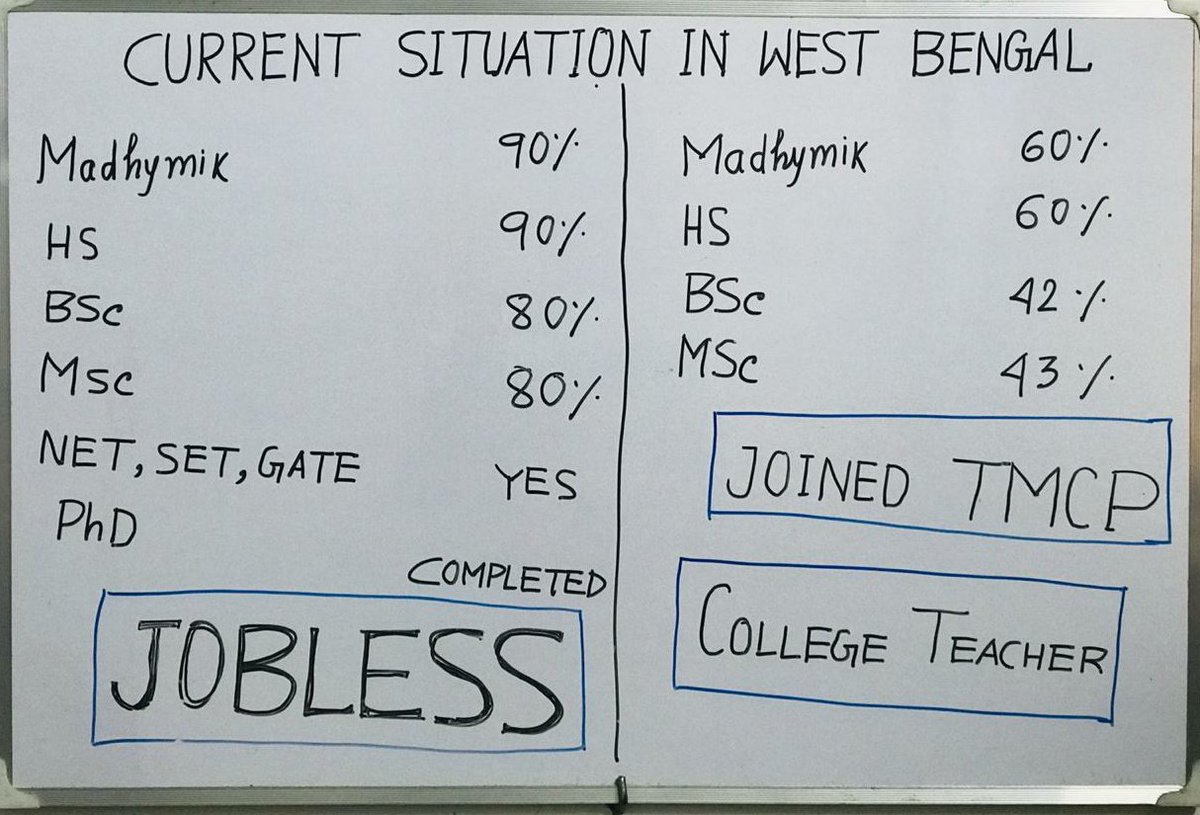 CURRENT SITUATION IN WEST BENGAL
Madhymik 90%
HS 90%
BSc 80%
Msc 80%
NET, SET, GATE YES
PhD
COMPLETED
JOBLESS
Madhymik 60%
HS 60%
BSc 42%
MSc 43%
JOINED TMCP
COLLEGE TEACHER